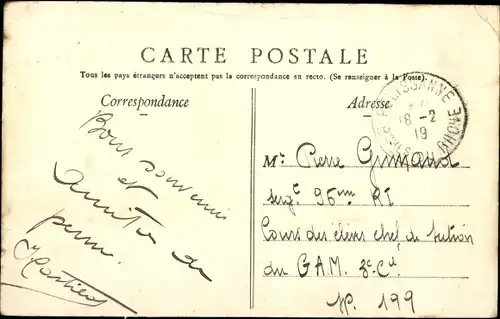 CARTE POSTALE
Tous les pays étrangers n'acceptent pas la correspondance au recto. (Se renseigner à la Poste).
Correspondance
Adresse
PELISSANNE
18-2
19
BOUCHES DU RHONE
Bons souvenirs
et
amitiés de
perm.
Mr Pierre
sergt 96ème RI
Cours des élèves chef de
du GAM. 3e Cie
Nº 199